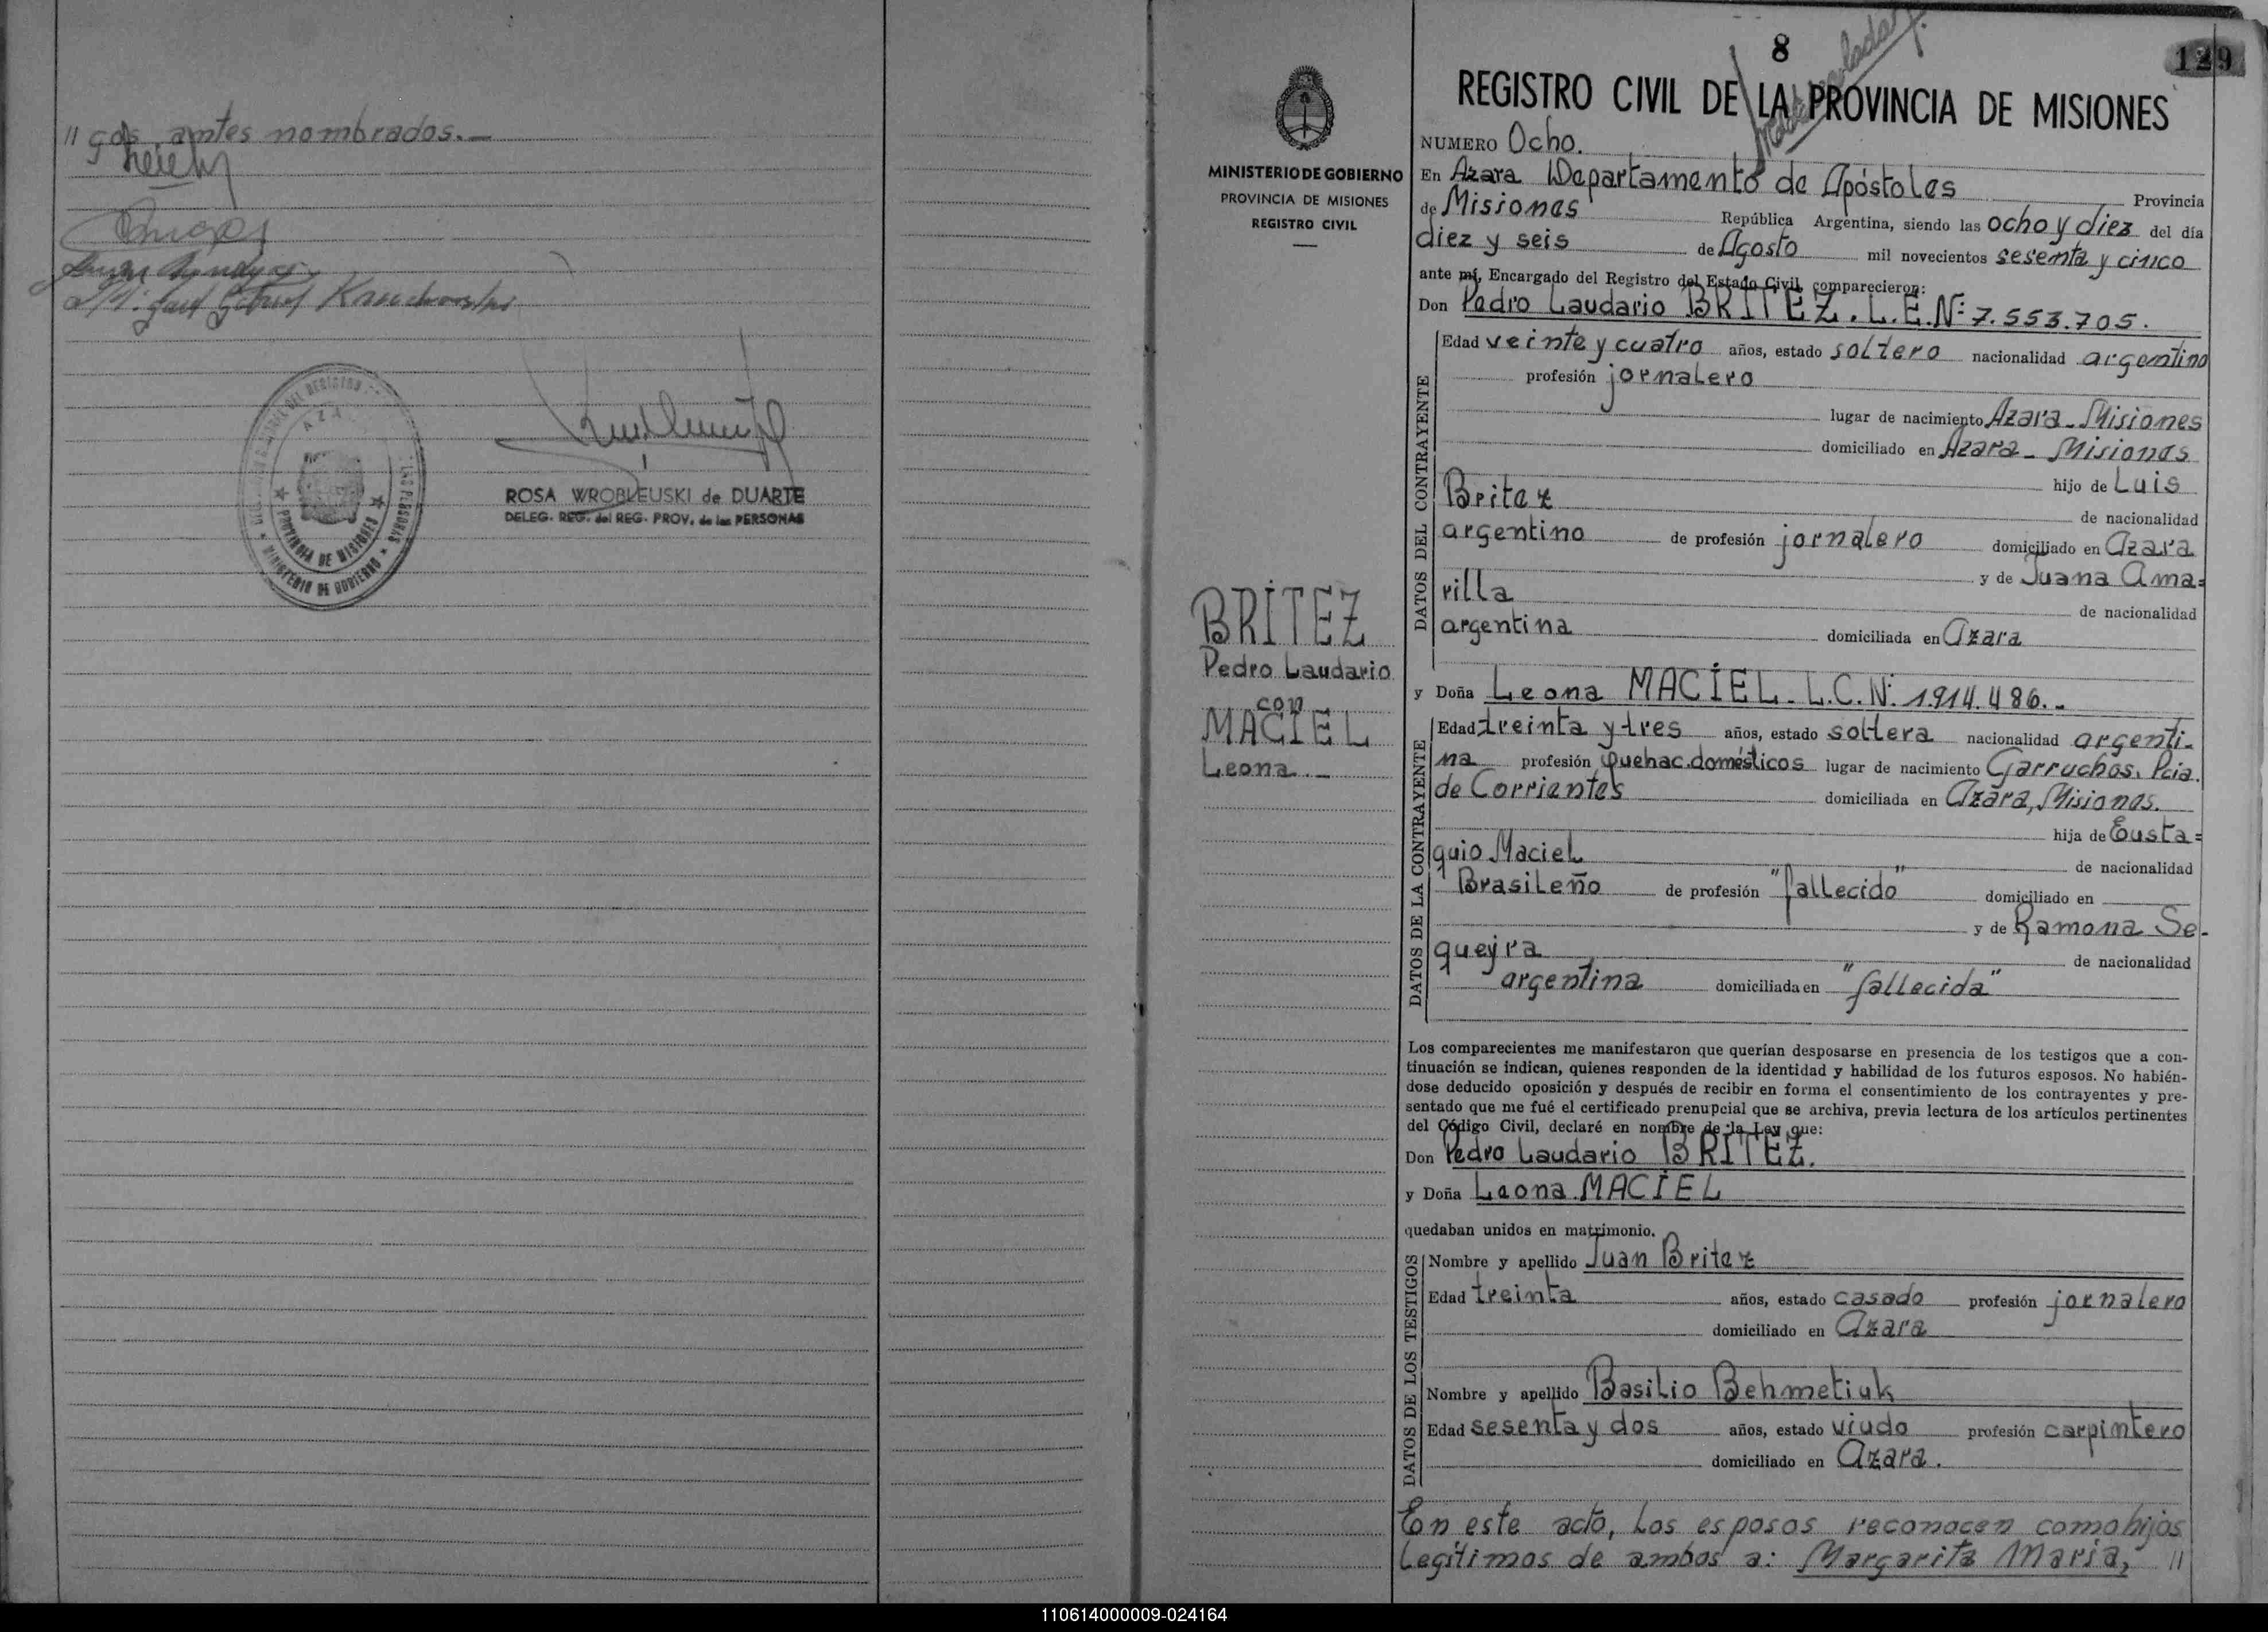 "gos antes nombrados.—
ROSA WROBLEUSKI de DUARTE
DELEG. REG. del REG. PROV. de las PERSONAS
PROVINCIA DE MISIONES
MINISTERIO DE GOBIERNO
MINISTERIO DE GOBIERNO
PROVINCIA DE MISIONES
REGISTRO CIVIL
BRITEZ
Pedro Laudario
con
MACIEL
Leona
8
129
REGISTRO CIVIL DE LA PROVINCIA DE MISIONES
NUMERO Ocho.
En Azara Departamento de Apóstoles Provincia
de Misiones República Argentina, siendo las ocho y diez del día
diez y seis de Agosto mil novecientos sesenta y cinco
ante mí, Encargado del Registro del Estado Civil, comparecieron:
Don Pedro Laudario BRITEZ. L.E.Nº 7.553.705.
DATOS DEL CONTRAYENTE
Edad veinte y cuatro años, estado soltero nacionalidad argentino
profesión jornalero
lugar de nacimiento Azara-Misiones
domiciliado en Azara-Misiones
hijo de Luis
Britez de nacionalidad
argentino de profesión jornalero domiciliado en Azara
y de Juana Ama=
rilla de nacionalidad
argentina domiciliada en Azara
y Doña Leona MACIEL. L.C.Nº 1.914.486.-
DATOS DE LA CONTRAYENTE
Edad treinta y tres años, estado soltera nacionalidad argenti-
na profesión Quehac.domésticos lugar de nacimiento Garruchos, Pcia.
de Corrientes domiciliada en Azara, Misiones.
hija de Eusta=
quio Maciel de nacionalidad
Brasileño de profesión "fallecido" domiciliado en
y de Ramona Se-
queyra de nacionalidad
argentina domiciliada en "fallecida"
Los comparecientes me manifestaron que querían desposarse en presencia de los testigos que a con-
tinuación se indican, quienes responden de la identidad y habilidad de los futuros esposos. No habién-
dose deducido oposición y después de recibir en forma el consentimiento de los contrayentes y pre-
sentado que me fué el certificado prenupcial que se archiva, previa lectura de los artículos pertinentes
del Código Civil, declaré en nombre de la Ley que:
Don Pedro Laudario BRITEZ.
y Doña Leona MACIEL
quedaban unidos en matrimonio.
DATOS DE LOS TESTIGOS
Nombre y apellido Juan Britez
Edad treinta años, estado casado profesión jornalero
domiciliado en Azara
Nombre y apellido Basilio Behmetiuk
Edad sesenta y dos años, estado viudo profesión carpintero
domiciliado en Azara.
En este acto, los esposos reconocen como hijos
legítimos de ambos a: Margarita María, "
110614000009-024164